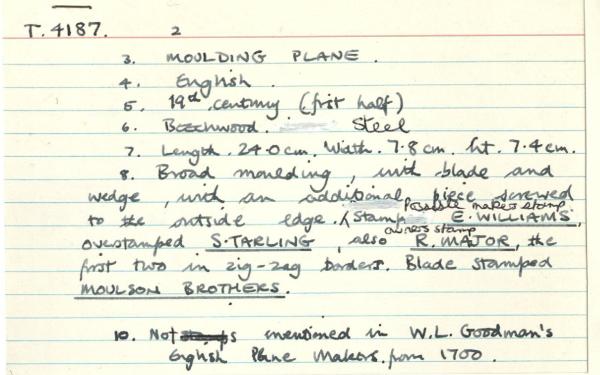 T. 4187. 2
3. MOULDING PLANE.
4. English.
5. 19th. century (first half)
6. Beechwood. Steel
7. Length. 24.0cm. Width. 7.8cm. ht. 7.4cm.
8. Broad moulding, with blade and
wedge, with an additional piece screwed
Possible makers stamp
to the outside edge. Stamp E. WILLIAMS,
owners stamp
overstamped S. TARLING, also R. MAJOR, the
first two in zig-zag borders. Blade stamped
MOULSON BROTHERS.
10. Not mentioned in W.L. Goodman's
English Plane Makers. from 1700.